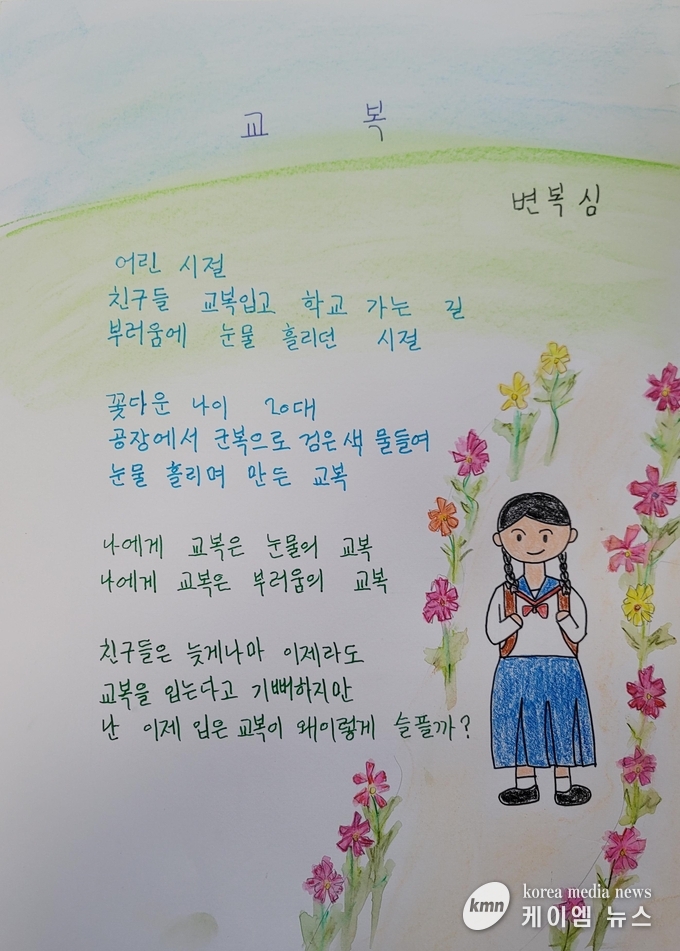 교 복
변복심
어린 시절
친구들 교복입고 학교 가는 길
부러움에 눈물 흘리던 시절
꽃다운 나이 20대
공장에서 군복으로 검은색 물들여
눈물 흘리며 만든 교복
나에게 교복은 눈물의 교복
나에게 교복은 부러움의 교복
친구들은 늦게나마 이제라도
교복을 입는다고 기뻐하지만
난 이제 입은 교복이 왜이렇게 슬플까?
kmn korea media news
케이엠 뉴스